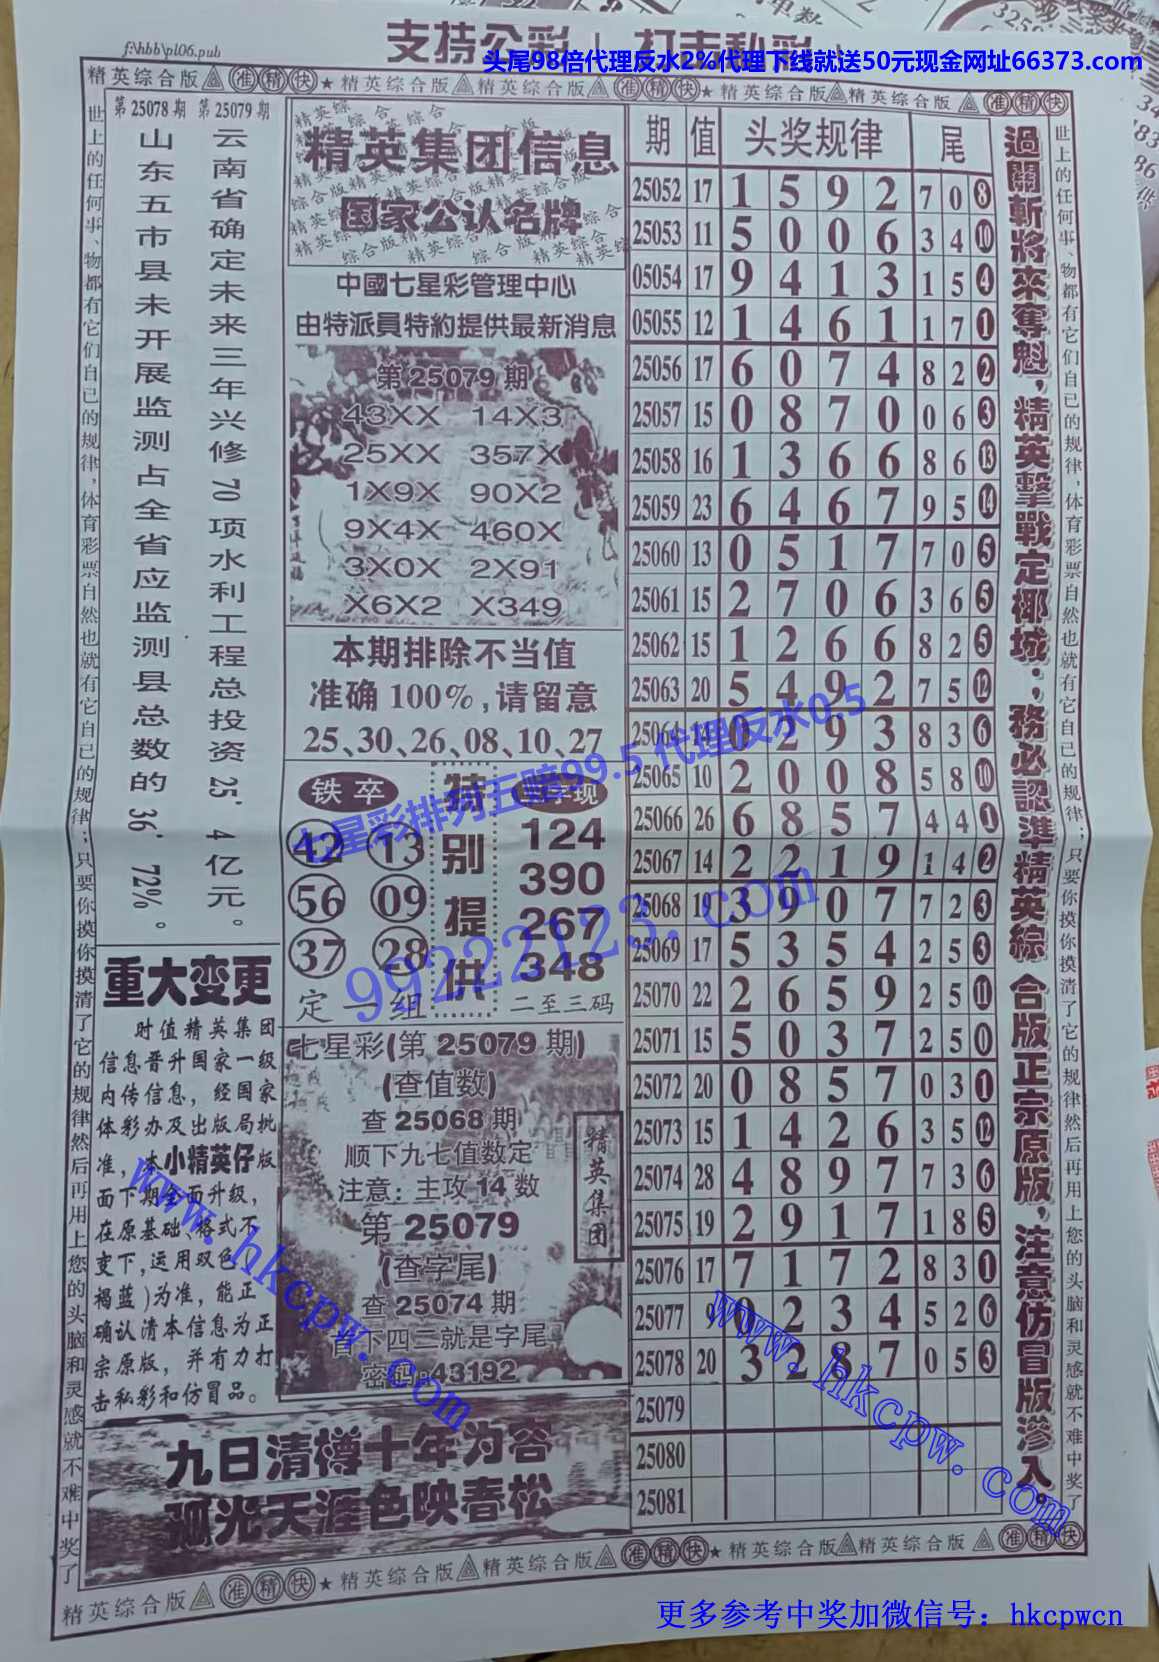 f:\hbb\pl06.pub
支持公彩！打击私彩！
头尾98倍代理反水2%代理下线就送50元现金网址66373.com
精英综合版 准 精 快 ★ 精英综合版 精英综合版 准 精 快 ★ 精英综合版 精英综合版 准 精 快
世上的任何事、物都有它们自己的规律，体育彩票自然也就有它自己的规律；只要你摸你摸清了它的规律然后再用上您的头脑和灵感就不难中奖了
第25078期 第25079期
云南省确定未来三年兴修70项水利工程总投资25.4亿元。
山东五市县未开展监测占全省应监测县总数的36.72%。
重大变更
时值精英集团
信息晋升国家一级
内传信息，经国家
体彩办及出版局批
准，本小精英仔版
面下期全面升级，
在原基础、格式不
变下，运用双色（
褐蓝）为准，能正
确认清本信息为正
宗原版，并有力打
击私彩和仿冒品。
精英集团信息
国家公认名牌
中國七星彩管理中心
由特派員特約提供最新消息
第25079期
43XX 14X3
25XX 357X
1X9X 90X2
9X4X 460X
3X0X 2X91
X6X2 X349
本期排除不当值
准确100%,请留意
25、30、26、08、10、27
铁卒
42 13
56 09
37 28
定一组
特别提供
字现
124
390
267
348
二至三码
七星彩(第25079期)
(查值数)
查25068期
顺下九七值数定
注意：主攻14数
第25079
(查字尾)
查25074期
首下四二就是字尾
密码:43192
精英集团
九日清樽十年为客
孤光天涯色映春松
期 值 头奖规律 尾
25052 17 1 5 9 2 7 0 8
25053 11 5 0 0 6 3 4 10
05054 17 9 4 1 3 1 5 4
05055 12 1 4 6 1 1 7 1
25056 17 6 0 7 4 8 2 2
25057 15 0 8 7 0 0 6 3
25058 16 1 3 6 6 8 6 13
25059 23 6 4 6 7 9 5 14
25060 13 0 5 1 7 7 0 5
25061 15 2 7 0 6 3 6 5
25062 15 1 2 6 6 8 2 5
25063 20 5 4 9 2 7 5 12
25064 14 0 2 9 3 8 3 6
25065 10 2 0 0 8 5 8 10
25066 26 6 8 5 7 4 4 1
25067 14 2 2 1 9 1 4 2
25068 19 3 9 0 7 7 2 3
25069 17 5 3 5 4 2 5 3
25070 22 2 6 5 9 2 5 11
25071 15 5 0 3 7 2 5 0
25072 20 0 8 5 7 0 3 1
25073 15 1 4 2 6 3 5 12
25074 28 4 8 9 7 7 3 6
25075 19 2 9 1 7 1 8 5
25076 17 7 1 7 2 8 3 1
25077 9 0 2 3 4 5 2 6
25078 20 3 2 8 7 0 5 3
25079
25080
25081
過關斬將來奪魁，精英擊戰定椰城；務必認準精英綜合版正宗原版，注意仿冒版滲入。
世上的任何事、物都有它们自己的规律，体育彩票自然也就有它自己的规律；只要你摸你摸清了它的规律然后再用上您的头脑和灵感就不难中奖了
七星彩排列五赔99.5 代理反水0.5
99222123.com
www.hkcpw.com
www.hkcpw.com
精英综合版 准 精 快 ★ 精英综合版 精英综合版 准 精 快 ★ 精英综合版 精英综合版 准 精 快
更多参考中奖加微信号：hkcpwcn